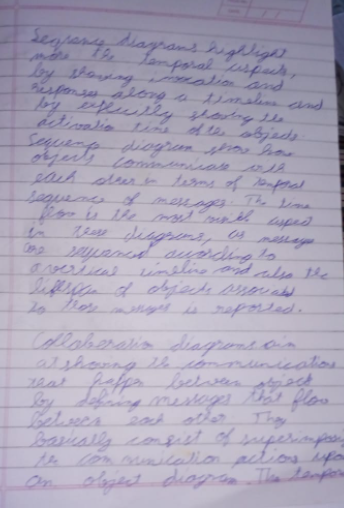 Sequence diagrams highlight
more the temporal aspects,
by showing invocation and
responses along a timeline and
by explicitly showing the
activation time of the objects.
Sequence diagram show how
objects communicate with
each other in terms of temporal
sequence of messages. The time
flow is the most visible aspect
in these diagrams, as messages
are sequenced according to
a vertical timeline and also the
lifespan of objects associated
to those messages is reported.
Collaboration diagrams aim
at showing the communications
that happen between objects
by defining messages that flow
between each other. They
basically consist of superimposing
the communication actions upon
an object diagram. The temporal